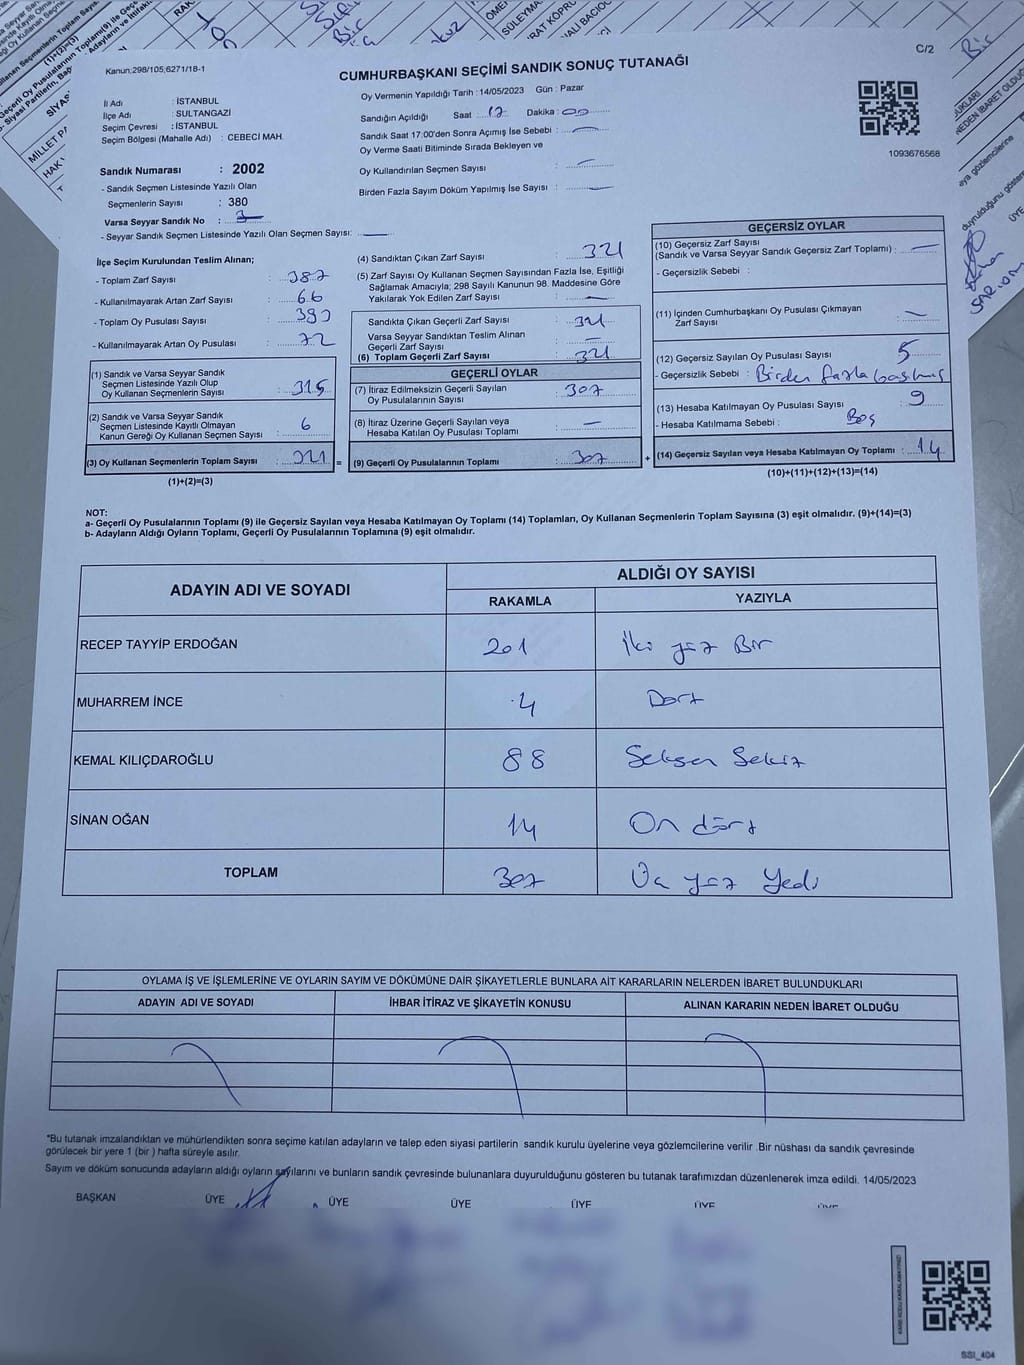 C/2
Kanun:298/105;6271/18-1
CUMHURBAŞKANI SEÇİMİ SANDIK SONUÇ TUTANAĞI
İl Adı : İSTANBUL
İlçe Adı : SULTANGAZİ
Seçim Çevresi : İSTANBUL
Seçim Bölgesi (Mahalle Adı) : CEBECİ MAH.
Oy Vermenin Yapıldığı Tarih : 14/05/2023 Gün : Pazar
Sandığın Açıldığı Saat : 17 Dakika : 00
Sandık Saat 17:00'den Sonra Açımış İse Sebebi :
Oy Verme Saati Bitiminde Sırada Bekleyen ve
Oy Kullandırılan Seçmen Sayısı :
Birden Fazla Sayım Döküm Yapılmış İse Sayısı :
1093676568
Sandık Numarası : 2002
- Sandık Seçmen Listesinde Yazılı Olan
Seçmenlerin Sayısı : 380
Varsa Seyyar Sandık No :
- Seyyar Sandık Seçmen Listesinde Yazılı Olan Seçmen Sayısı:
İlçe Seçim Kurulundan Teslim Alınan;
- Toplam Zarf Sayısı : 387
- Kullanılmayarak Artan Zarf Sayısı : 66
- Toplam Oy Pusulası Sayısı : 393
- Kullanılmayarak Artan Oy Pusulası : 72
(1) Sandık ve Varsa Seyyar Sandık
Seçmen Listesinde Yazılı Olup
Oy Kullanan Seçmenlerin Sayısı : 315
(2) Sandık ve Varsa Seyyar Sandık
Seçmen Listesinde Kayıtlı Olmayan
Kanun Gereği Oy Kullanan Seçmen Sayısı : 6
(3) Oy Kullanan Seçmenlerin Toplam Sayısı : 321
(1)+(2)=(3)
(4) Sandıktan Çıkan Zarf Sayısı : 321
(5) Zarf Sayısı Oy Kullanan Seçmen Sayısından Fazla İse, Eşitliği
Sağlamak Amacıyla; 298 Sayılı Kanunun 98. Maddesine Göre
Yakılarak Yok Edilen Zarf Sayısı :
Sandıkta Çıkan Geçerli Zarf Sayısı : 321
Varsa Seyyar Sandıktan Teslim Alınan
Geçerli Zarf Sayısı :
(6) Toplam Geçerli Zarf Sayısı : 321
GEÇERLİ OYLAR
(7) İtiraz Edilmeksizin Geçerli Sayılan
Oy Pusulalarının Sayısı : 307
(8) İtiraz Üzerine Geçerli Sayılan veya
Hesaba Katılan Oy Pusulası Toplamı :
= (9) Geçerli Oy Pusulalarının Toplamı : 307 +
GEÇERSİZ OYLAR
(10) Geçersiz Zarf Sayısı
(Sandık ve Varsa Seyyar Sandık Geçersiz Zarf Toplamı) :
- Geçersizlik Sebebi :
(11) İçinden Cumhurbaşkanı Oy Pusulası Çıkmayan
Zarf Sayısı :
(12) Geçersiz Sayılan Oy Pusulası Sayısı : 5
- Geçersizlik Sebebi : Birden fazla basılmış
(13) Hesaba Katılmayan Oy Pusulası Sayısı : 9
- Hesaba Katılmama Sebebi : Boş
(14) Geçersiz Sayılan veya Hesaba Katılmayan Oy Toplamı : 14
(10)+(11)+(12)+(13)=(14)
NOT:
a- Geçerli Oy Pusulalarının Toplamı (9) ile Geçersiz Sayılan veya Hesaba Katılmayan Oy Toplamı (14) Toplamları, Oy Kullanan Seçmenlerin Toplam Sayısına (3) eşit olmalıdır. (9)+(14)=(3)
b- Adayların Aldığı Oyların Toplamı, Geçerli Oy Pusulalarının Toplamına (9) eşit olmalıdır.
ADAYIN ADI VE SOYADI ALDIĞI OY SAYISI
RAKAMLA YAZIYLA
RECEP TAYYİP ERDOĞAN 201 İki yüz Bir
MUHARREM İNCE 4 Dört
KEMAL KILIÇDAROĞLU 88 Seksen Sekiz
SİNAN OĞAN 14 On dört
TOPLAM 307 Üç yüz Yedi
OYLAMA İŞ VE İŞLEMLERİNE VE OYLARIN SAYIM VE DÖKÜMÜNE DAİR ŞİKAYETLERLE BUNLARA AİT KARARLARIN NELERDEN İBARET BULUNDUKLARI
ADAYIN ADI VE SOYADI İHBAR İTİRAZ VE ŞİKAYETİN KONUSU ALINAN KARARIN NEDEN İBARET OLDUĞU
*Bu tutanak imzalandıktan ve mühürlendikten sonra seçime katılan adayların ve talep eden siyasi partilerin sandık kurulu üyelerine veya gözlemcilerine verilir .Bir nüshası da sandık çevresinde
görülecek bir yere 1 (bir ) hafta süreyle asılır.
Sayım ve döküm sonucunda adayların aldığı oyların sayılarını ve bunların sandık çevresinde bulunanlara duyurulduğunu gösteren bu tutanak tarafımızdan düzenlenerek imza edildi. 14/05/2023
BAŞKAN ÜYE ÜYE ÜYE ÜYE ÜYE ÜYE
SSI_404